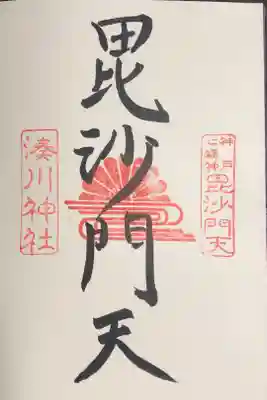 神戸七福神
毘沙門天
毘沙門天
湊川神社